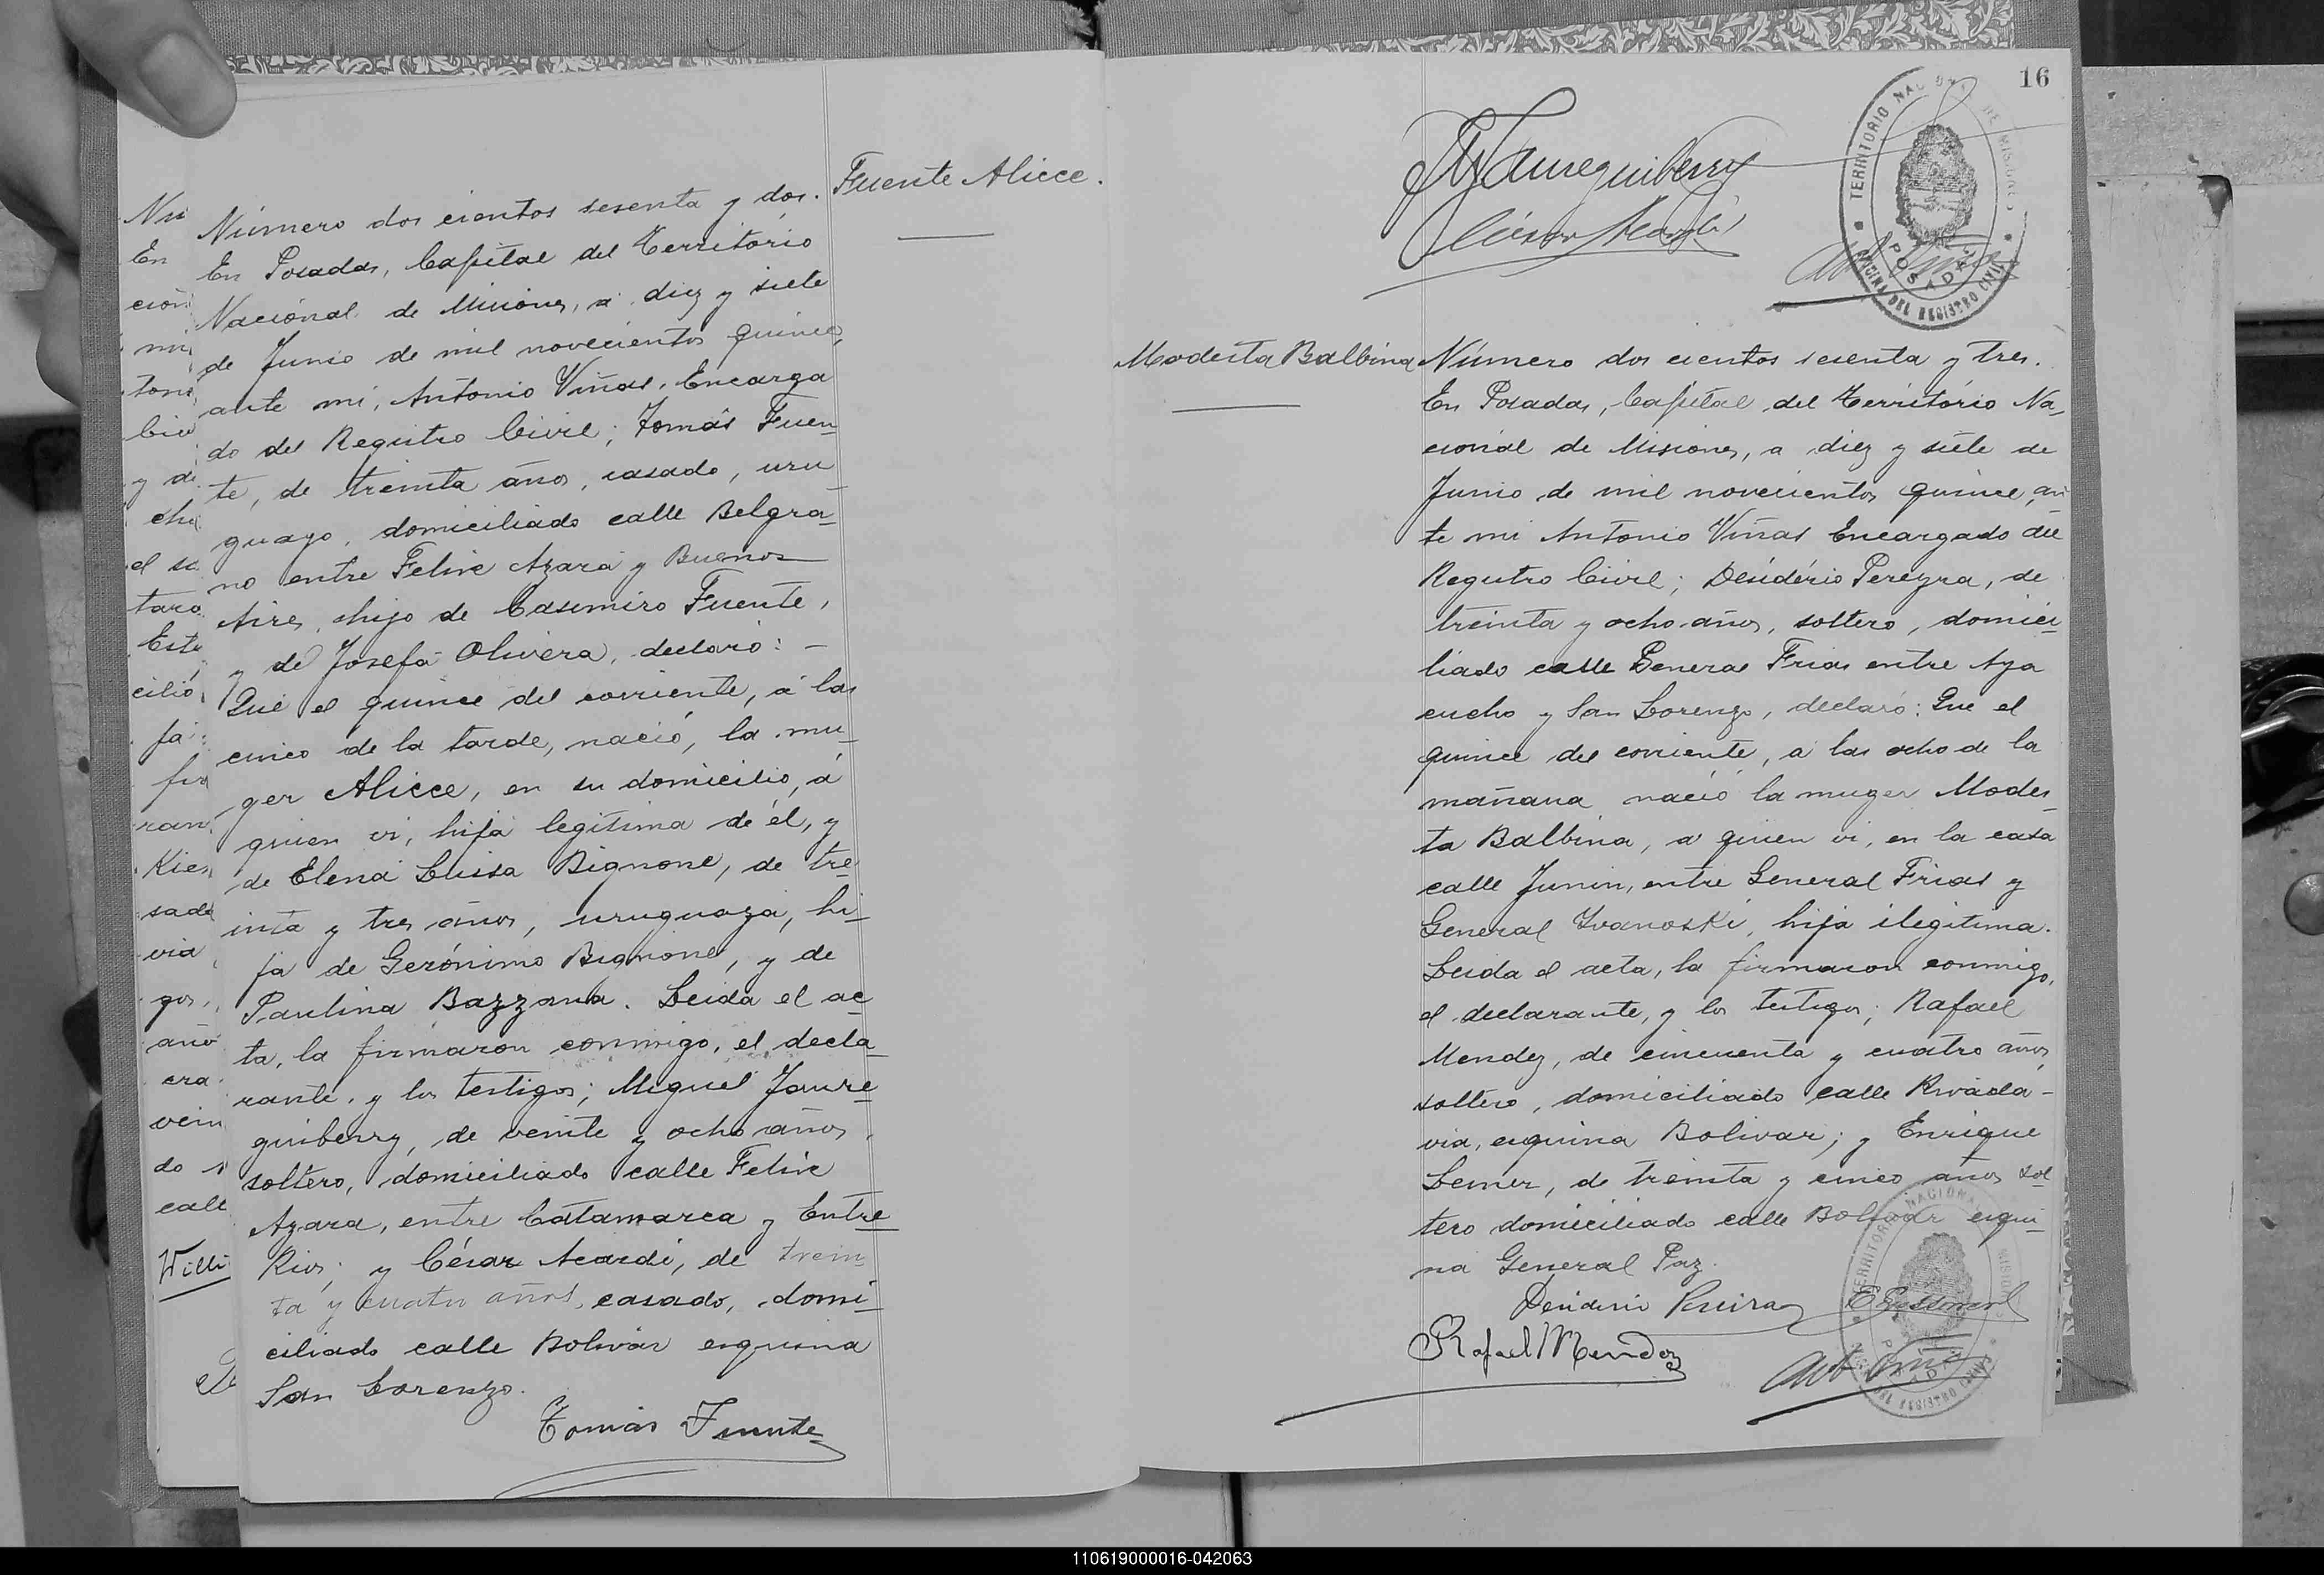 Nú
En
ción
mi
toni
Civ
y de
cho
el se
tara
Este
cilió
ja
fir
ran
Kier
sado
via
gos,
año
era
vein
do
calle
Willi
Fuente Alicce.
Número dos cientos sesenta y dos.
En Posadas, Capital del Territorio
Nacional de Misiones, á diez y siete
de Junio de mil novecientos quince,
ante mi, Antonio Viñas, Encarga
do del Registro Civil; Tomás Fuen-
te, de treinta años, casado, uru
guayo, domiciliado calle Belgra-
no entre Felix Azara y Buenos
Aires, hijo de Casimiro Fuente,
y de Josefa Olivera, declaró: -
Que el quince del corriente, á las
cinco de la tarde, nació, la mu-
ger Alicce, en su domicilio, á
quien vi, hija legítima de él, y
de Elena Luisa Bignone, de tre-
inta y tres años, uruguaya, hi-
ja de Gerónimo Bignone, y de
Paulina Bazzana. Leida el ac-
ta, la firmaron conmigo, el decla-
rante, y los testigos; Miguel Jaure-
guiberry, de veinte y ocho años,
soltero, domiciliado calle Felix
Azara, entre Catamarca y Entre
Rios; y César Acardi, de trein
ta y cuatro años, casado, domi-
ciliado calle Bolivar esquina
San Lorenzo.
Tomás Fuente
16
MJaureguiberry
TERRITORIO NACIONAL DE MISIONES
POSADAS
OFICINA DEL REGISTRO CIVIL
Modesta Balbina
Número dos cientos sesenta y tres.
En Posadas, Capital del Territorio Na-
cional de Misiones, a diez y siete de
Junio de mil novecientos quince, an-
te mi Antonio Viñas Encargado del
Registro Civil; Desidério Pereyra, de
treinta y ocho años, soltero, domici-
liado calle General Frias entre Aya
cucho y San Lorenzo, declaró: Que el
quince del corriente, a las ocho de la
mañana nació la muger Modes-
ta Balbina, a quien vi, en la casa
calle Junin, entre General Frias y
General Ivanoski, hija ilegitima.
Leida el acta, la firmaron conmigo,
el declarante, y los testigos; Rafael
Mendez, de cincuenta y cuatro años
soltero, domiciliado calle Rivada-
via, esquina Bolivar; y Enrique
Lemer, de treinta y cinco años sol
tero domiciliado calle Bolivar esqui-
na General Paz.
Desiderio Pereira
Rafael Mendez
TERRITORIO NACIONAL DE MISIONES
POSADAS
OFICINA DEL REGISTRO CIVIL
110619000016-042063